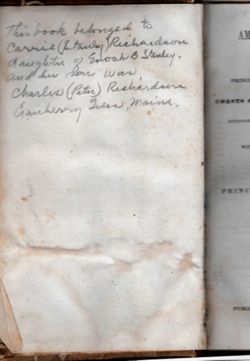 This book belonged to
Carrie (Stanley) Richardson
daughter of Enoch B. Stanley.
and her son was,
Charlie (Peter) Richardson
Cranberry Isles Maine.
AM
PRINC
COASTS
WIT
PRINC
PUBL